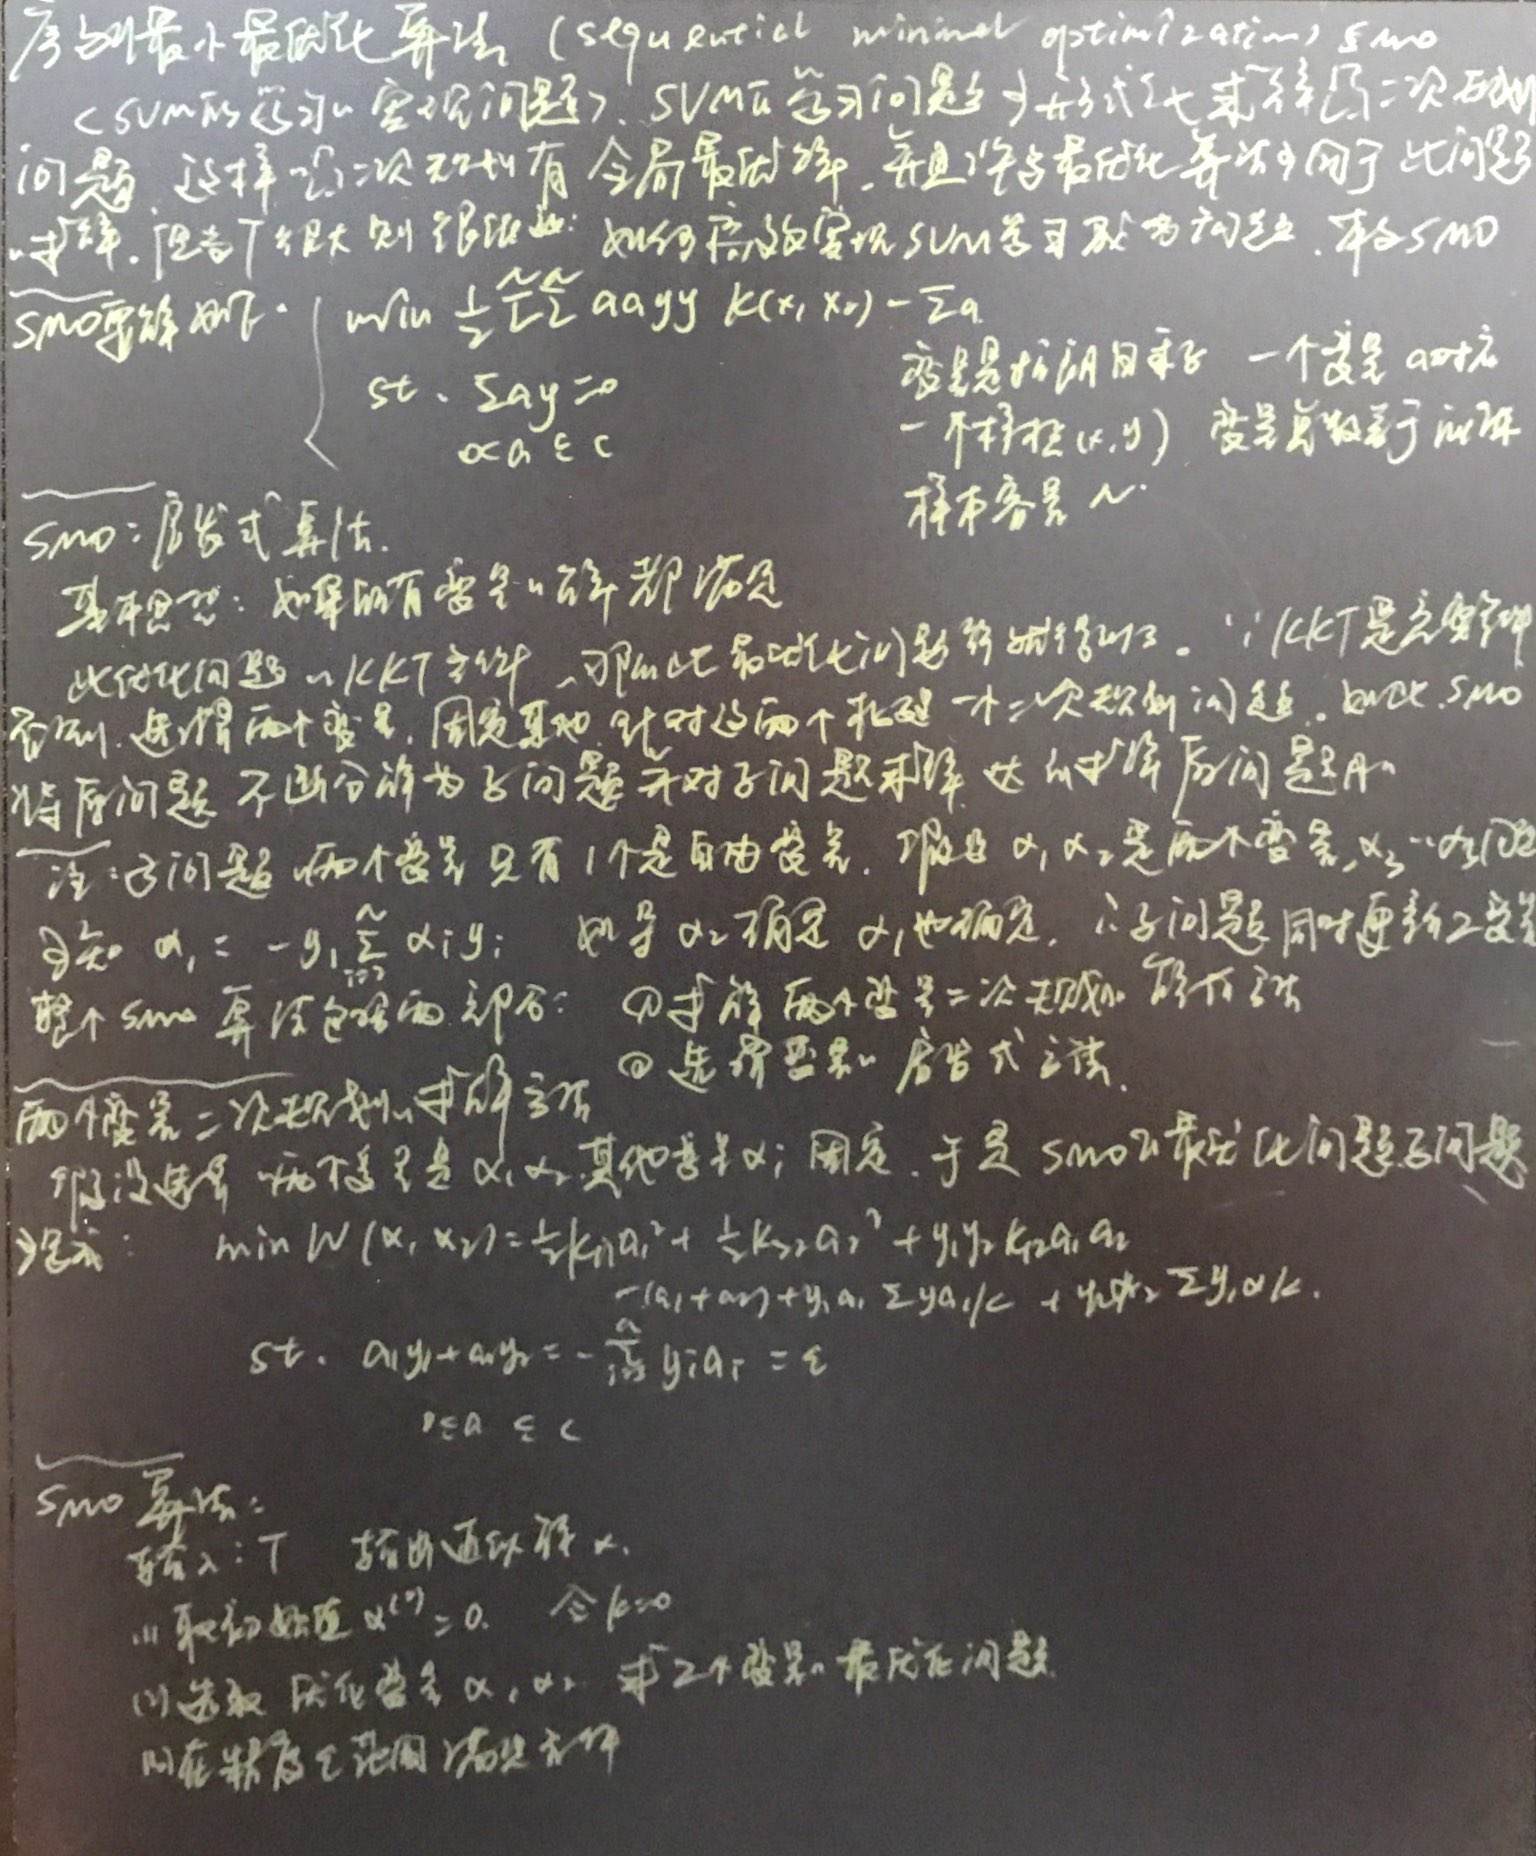 序列最小最优化算法 (sequential minimal optimization) SMO
<SVM的学习的实现问题>. SVM的学习问题可形式化求解凸二次规划
问题. 这样凸二次规划有全局最优解. 并且许多最优化算法可用于此问题
的求解. 但当T很大则很低效. 如何高效实现SVM学习成为问题. 本文SMO
SMO要解如下. min ½ΣΣ aayy K(x, x₂) - Σa
st. Σay=0
变量是拉朗日乘子 一个变量 a对应
一个样本(x,y) 变量总数等于训练
样本容量 N.
SMO: 启发式算法.
基本思想: 如果所有变量的解都满足
此优化问题的KKT条件, 那么此最优化问题的就得到了. ∵KKT是充要条件
否则, 选择两个变量, 固定其他, 针对这两个构建一个二次规划问题. 如此. SMO
将原问题不断分解为子问题并对子问题求解 达到求解原问题
注: 子问题 两个变量只有1个是自由变量. 假设 α₁ α₂ 是两个变量, α₃
可知 α₁ = -y₁ Σ αᵢyᵢ 如果 α₂ 确定 α₁也确定. ∴子问题同时更新2变量
整个SMO算法包括两部分: ①求解两个变量二次规划的解析方法
② 选择变量的启发式方法.
两个变量二次规划的求解方法
假设选择 两个变量是 α₁ α₂ 其他变量αᵢ 固定. 于是 SMO的最优化问题子问题
写成: min W(α₁ α₂) = ½K₁₁a₁² + ½K₂₂a₂² + y₁y₂K₁₂a₁a₂
-(a₁+a₂) + y₁a₁ Σya₁k + Σyᵢαk.
st. a₁y₁+a₂y₂ = - Σ yᵢaᵢ = ε
0≤a ≤ C
SMO算法:
输入: T 输出近似解 α.
(1) 取初始值 α⁽⁰⁾=0. 令k=0
(2) 选取优化变量 α₁ α₂ 求2个变量的最优化问题.
(3) 在精度ε范围满足条件